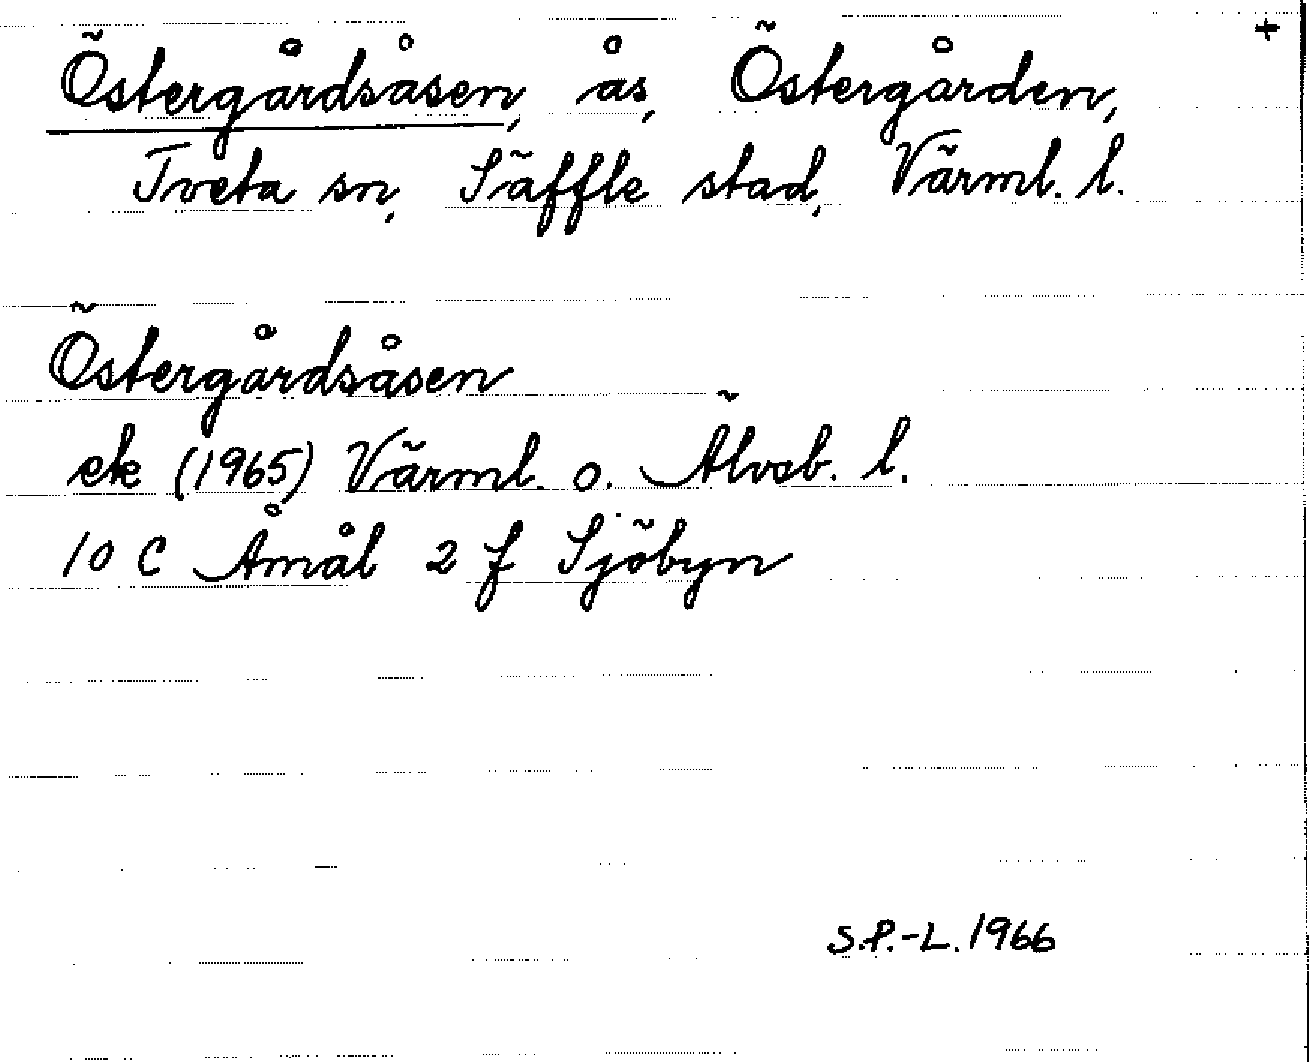 +
Östergårdsåsen, ås, Östergården,
Tveta sn, Säffle stad, Värml. l.
Östergårdsåsen
ek (1965) Värml. o. Älvsb. l.
10 C Åmål 2 f Sjöbyn
S.P.-L. 1966